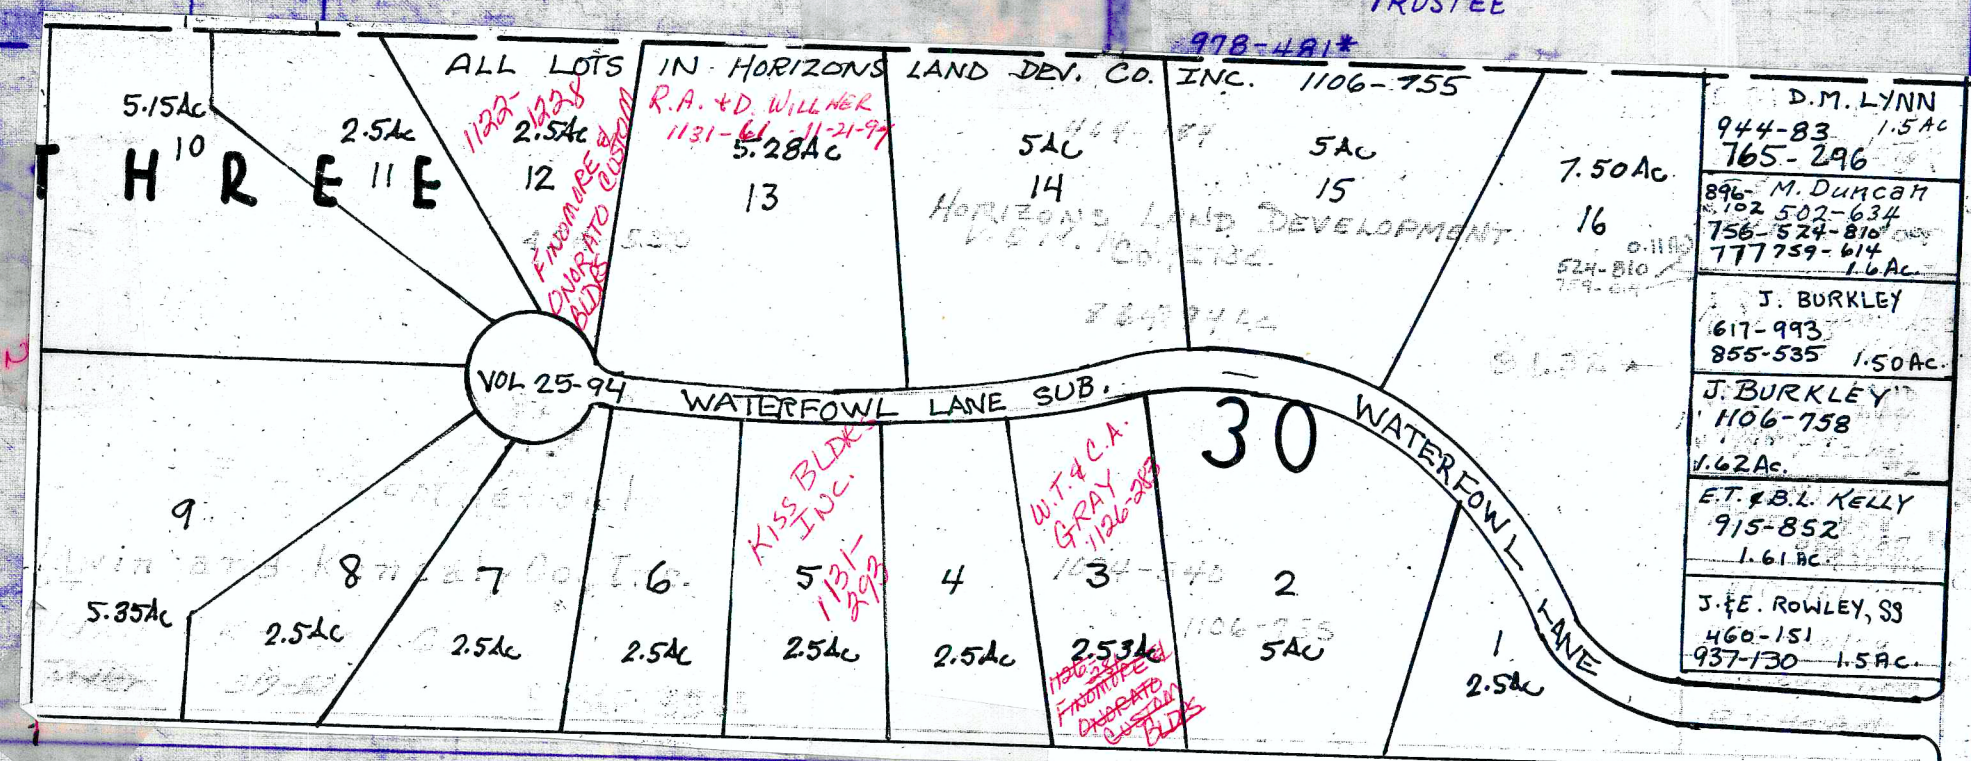 TRUSTEE
978-481*
ALL LOTS IN HORIZONS LAND DEV. CO. INC. 1106-755
5.15Ac
10
2.5Ac
11
THREE
1122-
1228
2.5Ac
12
FINOMORE &
ONORATO CUSTOM
BLDRS
R.A. & D. WILLNER
1131-61 11-21-94
5.28Ac
13
5Ac
14
5Ac
15
7.50Ac.
16
HORIZONS LAND DEVELOPMENT
524-810
D.M. LYNN
944-83 1.5AC
765-296
896- M. Duncan
102 502-634
756- 524-810
777 759-614
1.6Ac.
J. BURKLEY
617-993
855-535 1.50AC.
J. BURKLEY
1106-758
1.62Ac.
E.T. & B.L. KELLY
915-852
1.61AC
J. & E. ROWLEY, SS
460-151
937-130 1.5AC.
VOL 25-94
WATERFOWL LANE SUB.
WATERFOWL LANE
30
9
5.35Ac
8
2.5Ac
7
2.5Ac
6
2.5Ac
KISS BLDRS
INC.
5
1131-
293
2.5Ac
4
2.5Ac
W.T. & C.A.
GRAY
1126-283
3
2.53Ac
FINOMORE &
ONORATO
CUSTOM
BLDRS
2
1106-755
5Ac
1
2.5Ac